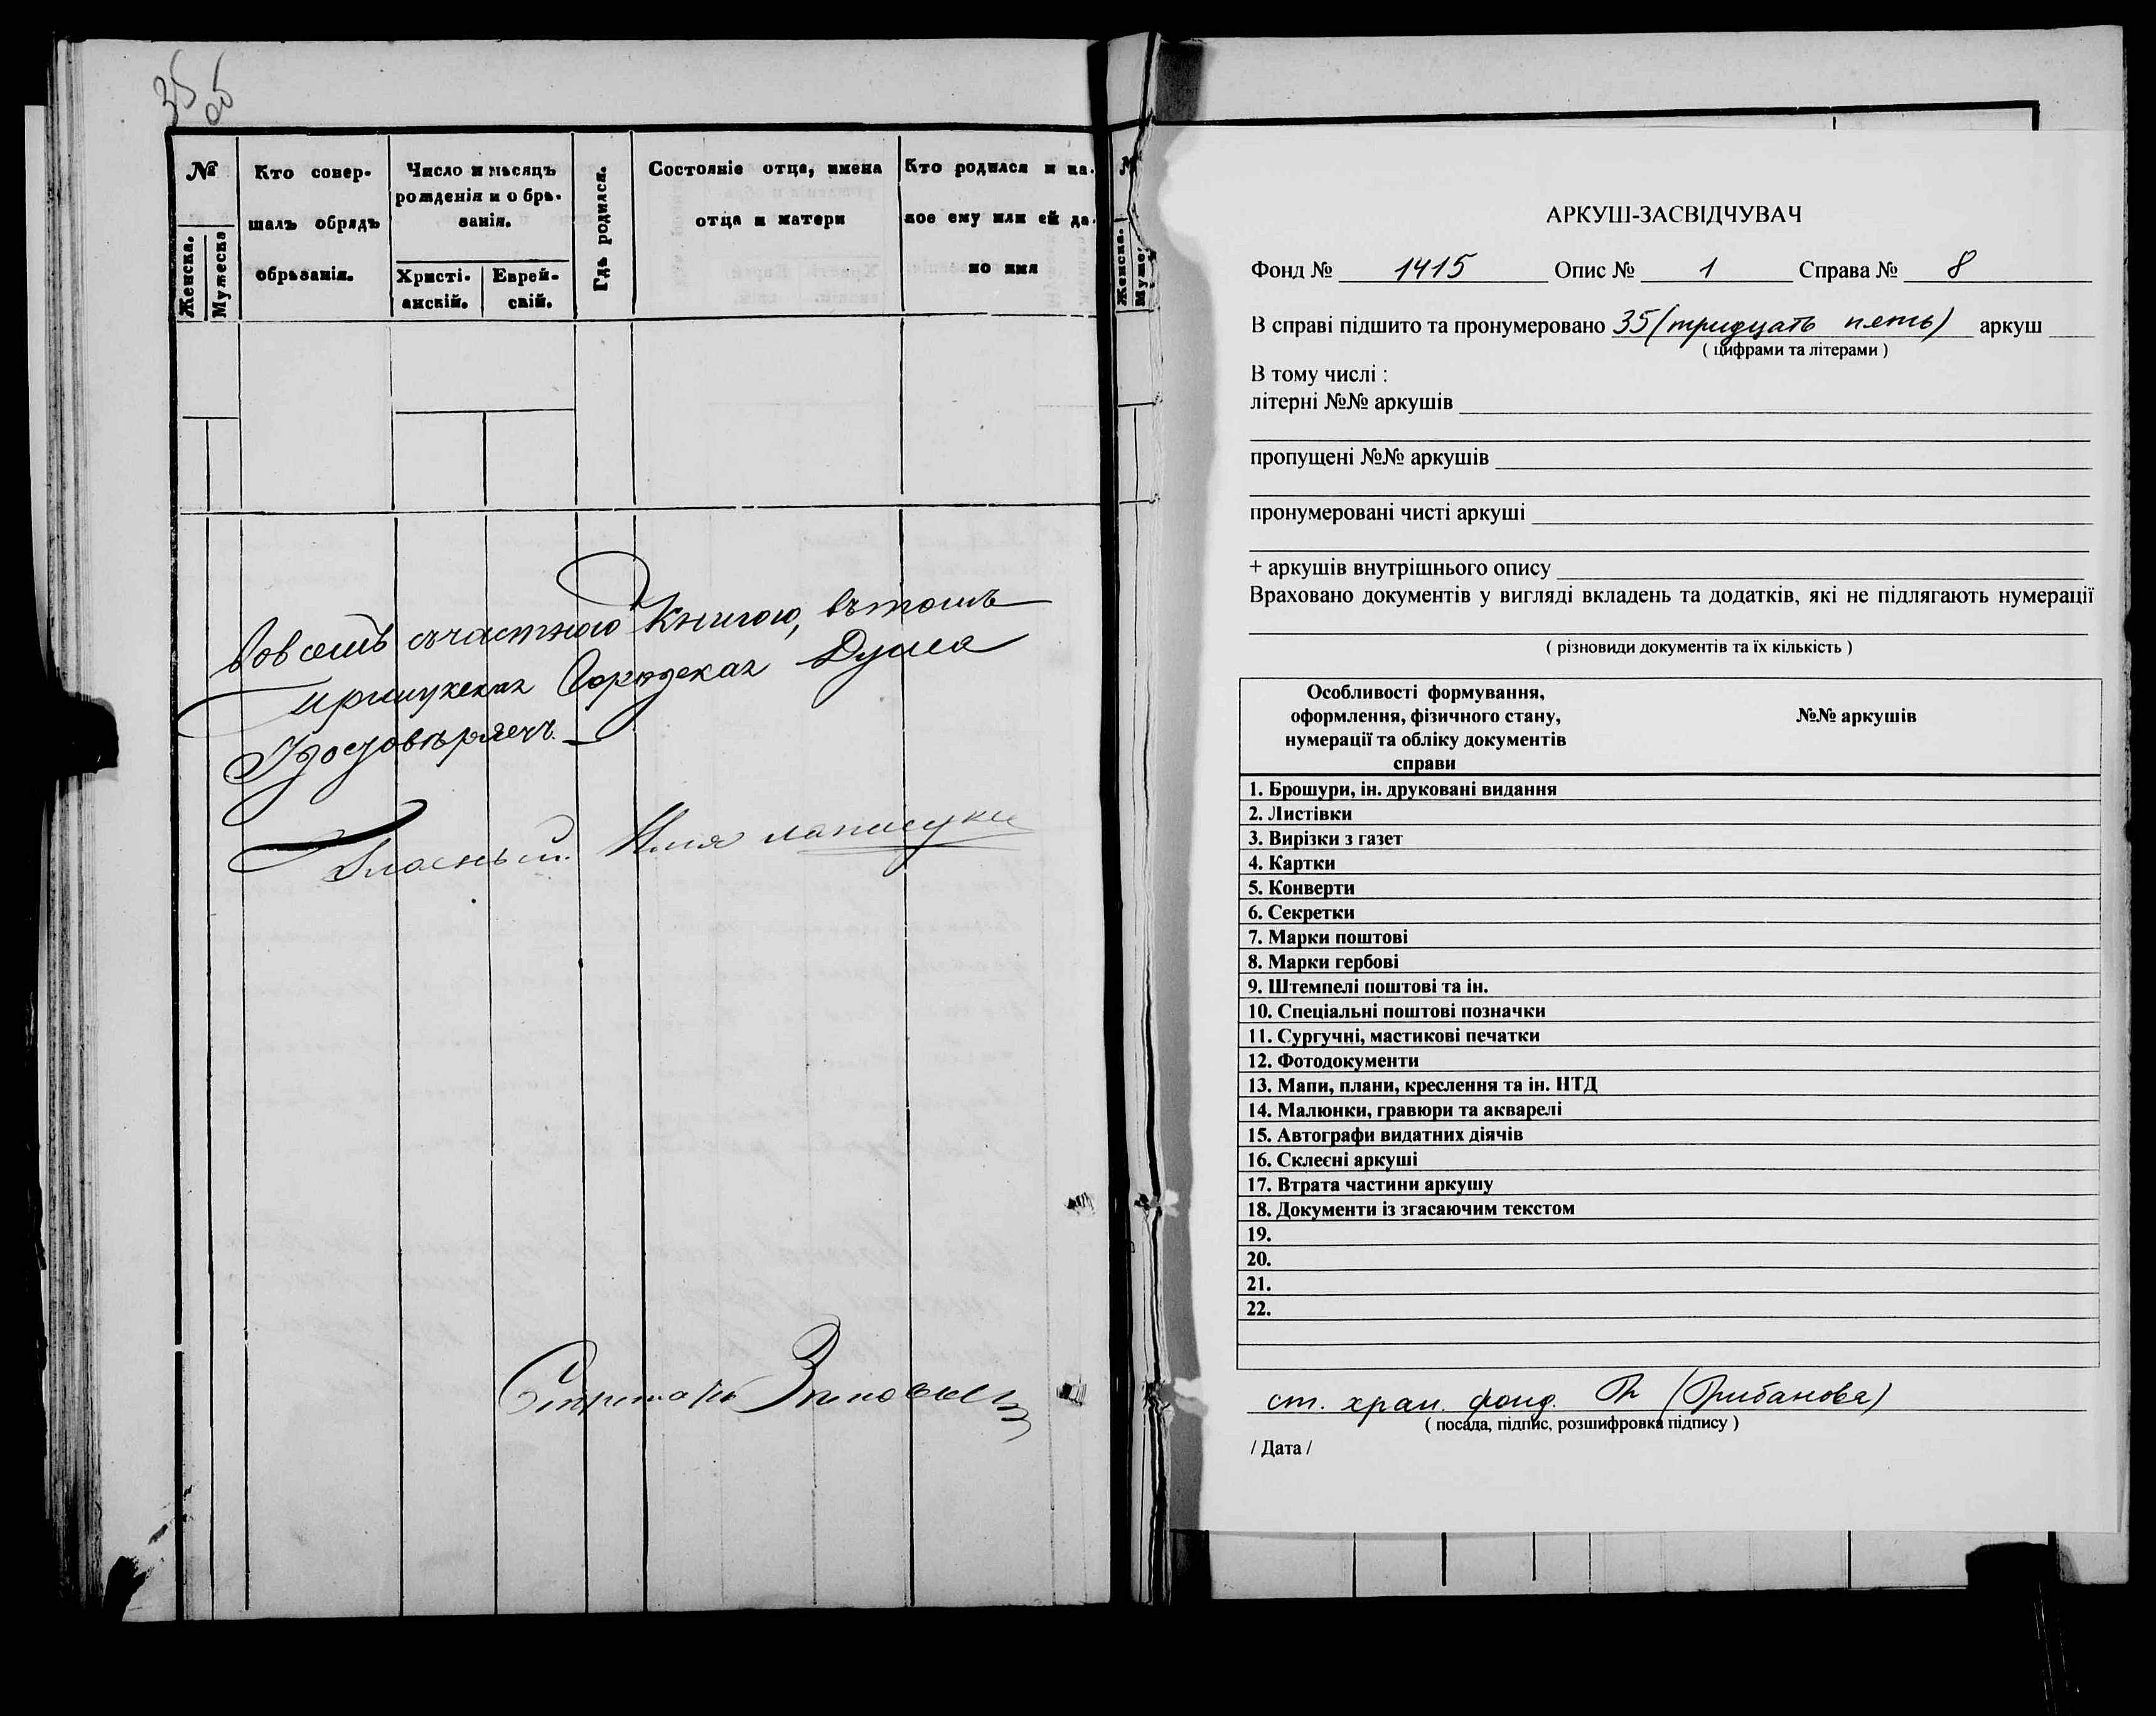 35 об
№
Женска.
Мужеска
Кто совер-
шалъ обрядъ
обрѣзанія.
Число и мѣсяцъ
рожденія и обрѣ-
занія.
Христі-
анскій.
Еврей-
скій.
Гдѣ родился.
Состояніе отца, имена
отца и матери
Кто родился и ка-
кое ему или ей да-
но имя
Женска.
Муже
съ частною Книгою, въ томъ
Городская Дума
Удостовѣряетъ.
Гласный Илья
Секретарь
АРКУШ-ЗАСВІДЧУВАЧ
Фонд № 1415 Опис № 1 Справа № 8
В справі підшито та пронумеровано 35 (тридцать пять) аркуш
( цифрами та літерами )
В тому числі :
літерні №№ аркушів
пропущені №№ аркушів
пронумеровані чисті аркуші
+ аркушів внутрішнього опису
Враховано документів у вигляді вкладень та додатків, які не підлягають нумерації
( різновиди документів та їх кількість )
Особливості формування,
оформлення, фізичного стану,
нумерації та обліку документів
справи
№№ аркушів
1. Брошури, ін. друковані видання
2. Листівки
3. Вирізки з газет
4. Картки
5. Конверти
6. Секретки
7. Марки поштові
8. Марки гербові
9. Штемпелі поштові та ін.
10. Спеціальні поштові позначки
11. Сургучні, мастикові печатки
12. Фотодокументи
13. Мапи, плани, креслення та ін. НТД
14. Малюнки, гравюри та акварелі
15. Автографи видатних діячів
16. Склеєні аркуші
17. Втрата частини аркушу
18. Документи із згасаючим текстом
19.
20.
21.
22.
ст. хран. фонд. (Грибанова)
( посада, підпис, розшифровка підпису )
/ Дата /